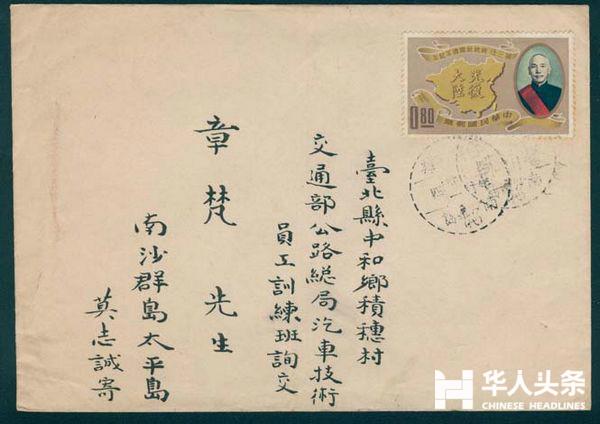 臺北縣中和鄉積穗村
交通部公路總局汽車技術
員工訓練班詢交
章梵 先生
南沙群島太平島
莫志誠寄
光復
大陸
中華民國郵票
0.80
华人头条
CHINESE HEADLINES